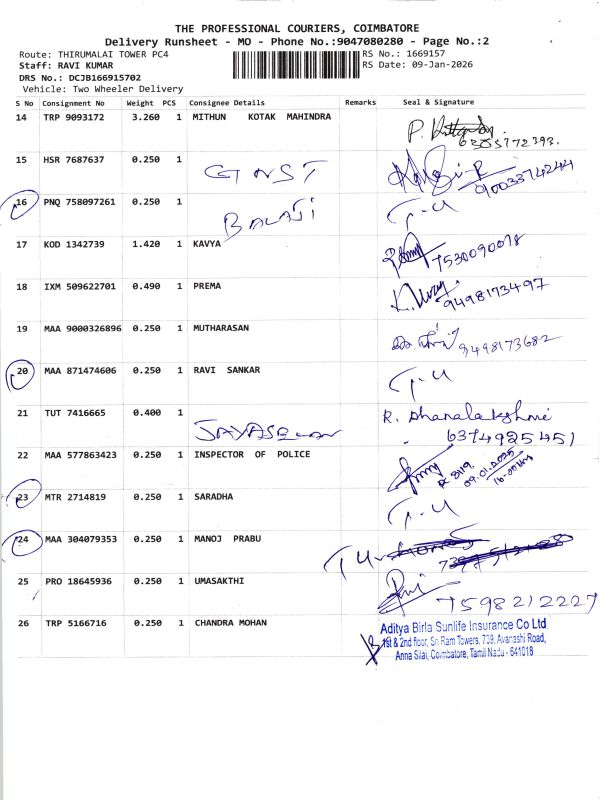 THE PROFESSIONAL COURIERS, COIMBATORE
Delivery Runsheet - MO - Phone No.:9047080280 - Page No.:2
Route: THIRUMALAI TOWER PC4 RS No.: 1669157
Staff: RAVI KUMAR RS Date: 09-Jan-2026
DRS No.: DCJB166915702
Vehicle: Two Wheeler Delivery
S No Consignment No Weight PCS Consignee Details Remarks Seal & Signature
14 TRP 9093172 3.260 1 MITHUN KOTAK MAHINDRA
15 HSR 7687637 0.250 1 GNST
16 PNQ 758097261 0.250 1 BALAJI
17 KOD 1342739 1.420 1 KAVYA 7530090078
18 IXM 509622701 0.490 1 PREMA 9498173497
19 MAA 9000326896 0.250 1 MUTHARASAN 9498173682
20 MAA 871474606 0.250 1 RAVI SANKAR
21 TUT 7416665 0.400 1 R. Dhanalakshmi
6374925451
22 MAA 577863423 0.250 1 INSPECTOR OF POLICE
23 MTR 2714819 0.250 1 SARADHA
24 MAA 304079353 0.250 1 MANOJ PRABU
25 PRO 18645936 0.250 1 UMASAKTHI 7598212227
26 TRP 5166716 0.250 1 CHANDRA MOHAN
Aditya Birla Sunlife Insurance Co Ltd
1st & 2nd floor, Sri Ram Towers, 739, Avanashi Road,
Anna Silai, Coimbatore, Tamil Nadu - 641018